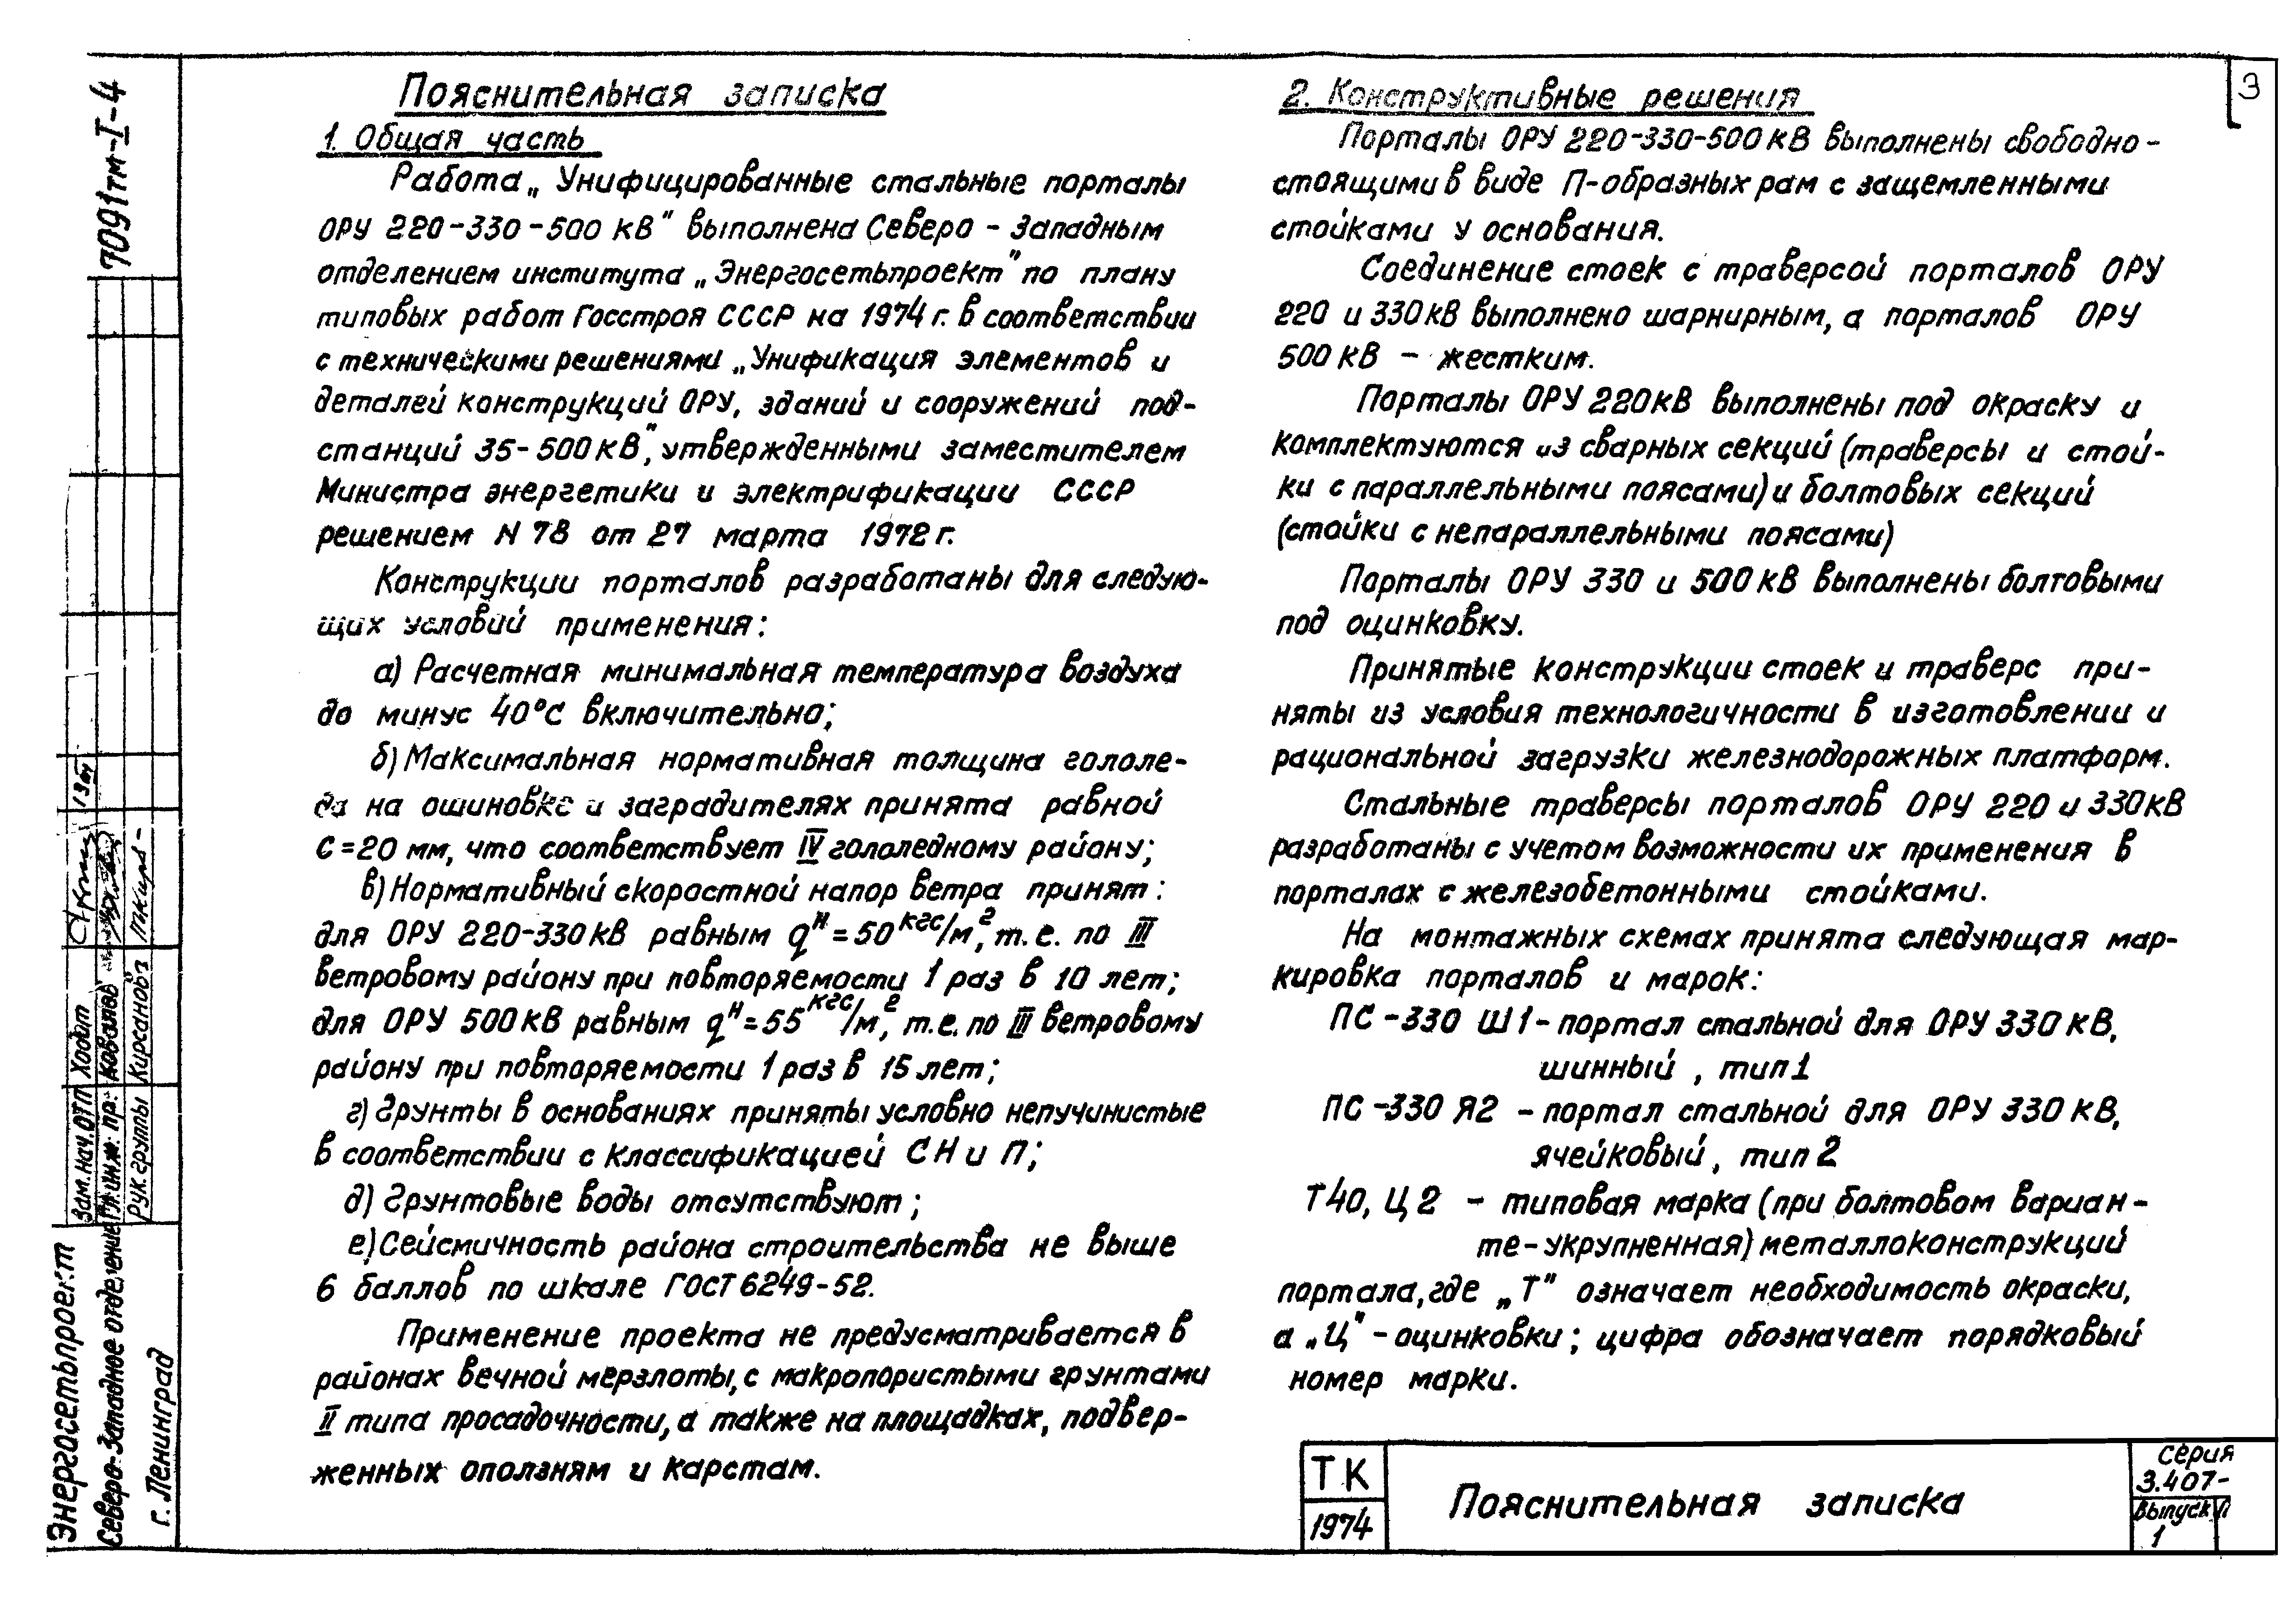 Пояснительная записка
1. Общая часть
Работа „Унифицированные стальные порталы
ОРУ 220-330-500 кВ" выполнена Северо-Западным
отделением института „Энергосетьпроект" по плану
типовых работ Госстроя СССР на 1974 г. в соответствии
с техническими решениями „Унификация элементов и
деталей конструкций ОРУ, зданий и сооружений под-
станций 35-500 кВ", утвержденными заместителем
Министра энергетики и электрификации СССР
решением N 78 от 27 марта 1972 г.
Конструкции порталов разработаны для следую-
щих условий применения:
а) Расчетная минимальная температура воздуха
до минус 40°С включительно;
б) Максимальная нормативная толщина гололе-
да на ошиновке и заградителях принята равной
С=20 мм, что соответствует IV гололедному району;
в) Нормативный скоростной напор ветра принят:
для ОРУ 220-330 кВ равным qᴴ=50 кгс/м², т.е. по III
ветровому району при повторяемости 1 раз в 10 лет;
для ОРУ 500 кВ равным qᴴ=55 кгс/м², т.е. по III ветровому
району при повторяемости 1 раз в 15 лет;
г) Грунты в основаниях приняты условно непучинистые
в соответствии с классификацией СНиП;
д) Грунтовые воды отсутствуют;
е) Сейсмичность района строительства не выше
6 баллов по шкале ГОСТ 6249-52.
Применение проекта не предусматривается в
районах вечной мерзлоты, с макропористыми грунтами
II типа просадочности, а также на площадках, подвер-
женных оползням и карстам.
2. Конструктивные решения
Порталы ОРУ 220-330-500 кВ выполнены свободно-
стоящими в виде П-образных рам с защемленными
стойками у основания.
Соединение стоек с траверсой порталов ОРУ
220 и 330 кВ выполнено шарнирным, а порталов ОРУ
500 кВ - жестким.
Порталы ОРУ 220 кВ выполнены под окраску и
комплектуются из сварных секций (траверсы и стой-
ки с параллельными поясами) и болтовых секций
(стойки с непараллельными поясами)
Порталы ОРУ 330 и 500 кВ выполнены болтовыми
под оцинковку.
Принятые конструкции стоек и траверс при-
няты из условия технологичности в изготовлении и
рациональной загрузки железнодорожных платформ.
Стальные траверсы порталов ОРУ 220 и 330 кВ
разработаны с учетом возможности их применения в
порталах с железобетонными стойками.
На монтажных схемах принята следующая мар-
кировка порталов и марок:
ПС-330 Ш1 - портал стальной для ОРУ 330 кВ,
шинный, тип 1
ПС-330 Я2 - портал стальной для ОРУ 330 кВ,
ячейковый, тип 2
Т40, Ц2 - типовая марка (при болтовом вариан-
те-укрупненная) металлоконструкций
портала, где „Т" означает необходимость окраски,
а „Ц" - оцинковки; цифра обозначает порядковый
номер марки.
3
7091тм-I-4
Зам.нач.ОТП Ходот
Гл.инж.пр. Ковалев
Рук.группы Кирсанова
Энергосетьпроект
Северо-Западное отделение
г. Ленинград
ТК
1974
Пояснительная записка
Серия
3.407-
Выпуск
1